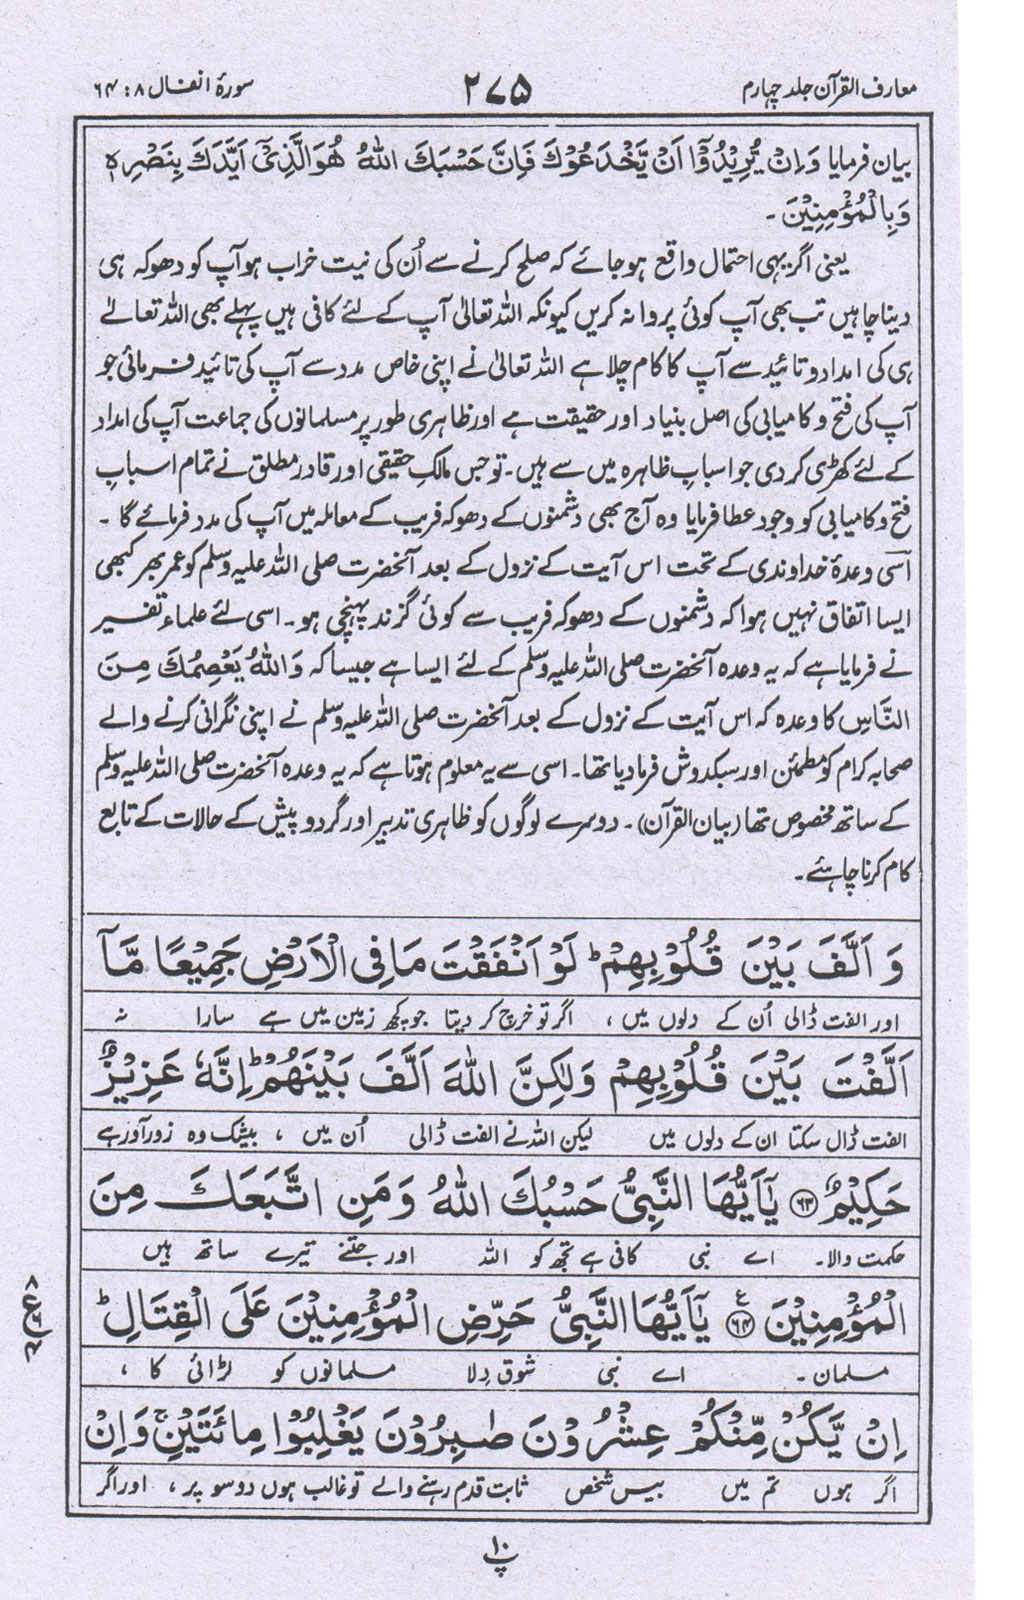 معارف القرآن جلد چہارم ۲۷۵ سورۂ انفال ۸ : ۶۴
بیان فرمایا وَاِنْ يُّرِيْدُوْٓا اَنْ يَّخْدَعُوْكَ فَاِنَّ حَسْبَكَ اللّٰهُ هُوَ الَّذِيْٓ اَيَّدَكَ بِنَصْرِهٖ
وَبِالْمُؤْمِنِيْنَ ۔
یعنی اگر یہی احتمال واقع ہو جائے کہ صلح کرنے سے اُن کی نیت خراب ہو آپ کو دھوکہ ہی
دینا چاہیں تب بھی آپ کوئی پروا نہ کریں کیونکہ اللہ تعالیٰ آپ کے لئے کافی ہیں پہلے بھی اللہ تعالےٰ
ہی کی امداد و تائید سے آپ کا کام چلا ہے اللہ تعالیٰ نے اپنی خاص مدد سے آپ کی تائید فرمائی جو
آپ کی فتح و کامیابی کی اصل بنیاد اور حقیقت ہے اور ظاہری طور پر مسلمانوں کی جماعت آپ کی امداد
کے لئے کھڑی کر دی جو اسبابِ ظاہرہ میں سے ہیں۔ تو جس مالکِ حقیقی اور قادر مطلق نے تمام اسبابِ
فتح و کامیابی کو وجود عطا فرمایا وہ آج بھی دشمنوں کے دھوکہ فریب کے معاملہ میں آپ کی مدد فرمائے گا ۔
اسی وعدۂ خداوندی کے تحت اس آیت کے نزول کے بعد آنحضرت صلی اللہ علیہ وسلم کو عمر بھر کبھی
ایسا اتفاق نہیں ہوا کہ دشمنوں کے دھوکہ فریب سے کوئی گزند پہنچی ہو۔ اسی لئے علماء تفسیر
نے فرمایا ہے کہ یہ وعدہ آنحضرت صلی اللہ علیہ وسلم کے لئے ایسا ہے جیسا کہ وَاللّٰهُ يَعْصِمُكَ مِنَ
النَّاسِ کا وعدہ کہ اس آیت کے نزول کے بعد آنحضرت صلی اللہ علیہ وسلم نے اپنی نگرانی کرنے والے
صحابہ کرام کو مطمئن اور سبکدوش فرما دیا تھا۔ اسی سے یہ معلوم ہوتا ہے کہ یہ وعدہ آنحضرت صلی اللہ علیہ وسلم
کے ساتھ مخصوص تھا (بیان القرآن)۔ دوسرے لوگوں کو ظاہری تدبیر اور گرد و پیش کے حالات کے تابع
کام کرنا چاہئے۔
وَ اَلَّفَ بَيْنَ قُلُوْبِهِمْ ؕ لَوْ اَنْفَقْتَ مَا فِي الْاَرْضِ جَمِيْعًا مَّآ
اور الفت ڈالی اُن کے دلوں میں ، اگر تو خرچ کر دیتا جو کچھ زمین میں ہے سارا نہ
اَلَّفْتَ بَيْنَ قُلُوْبِهِمْ وَلٰكِنَّ اللّٰهَ اَلَّفَ بَيْنَهُمْ ؕ اِنَّهٗ عَزِيْزٌ
الفت ڈال سکتا ان کے دلوں میں لیکن اللہ نے الفت ڈالی اُن میں ، بیشک وہ زورآور ہے
حَكِيْمٌ ﴿۶۳﴾ يٰٓاَيُّهَا النَّبِيُّ حَسْبُكَ اللّٰهُ وَمَنِ اتَّبَعَكَ مِنَ
حکمت والا۔ اے نبی کافی ہے تجھ کو اللہ اور جتنے تیرے ساتھ ہیں
الْمُؤْمِنِيْنَ ﴿۶۴﴾ ع يٰٓاَيُّهَا النَّبِيُّ حَرِّضِ الْمُؤْمِنِيْنَ عَلَى الْقِتَالِ ؕ
مسلمان ۔ اے نبی شوق دِلا مسلمانوں کو لڑائی کا ،
اِنْ يَّكُنْ مِّنْكُمْ عِشْرُوْنَ صٰبِرُوْنَ يَغْلِبُوْا مِائَتَيْنِ ۚ وَاِنْ
اگر ہوں تم میں بیس شخص ثابت قدم رہنے والے تو غالب ہوں دو سو پر ، اور اگر
پ ۱۰